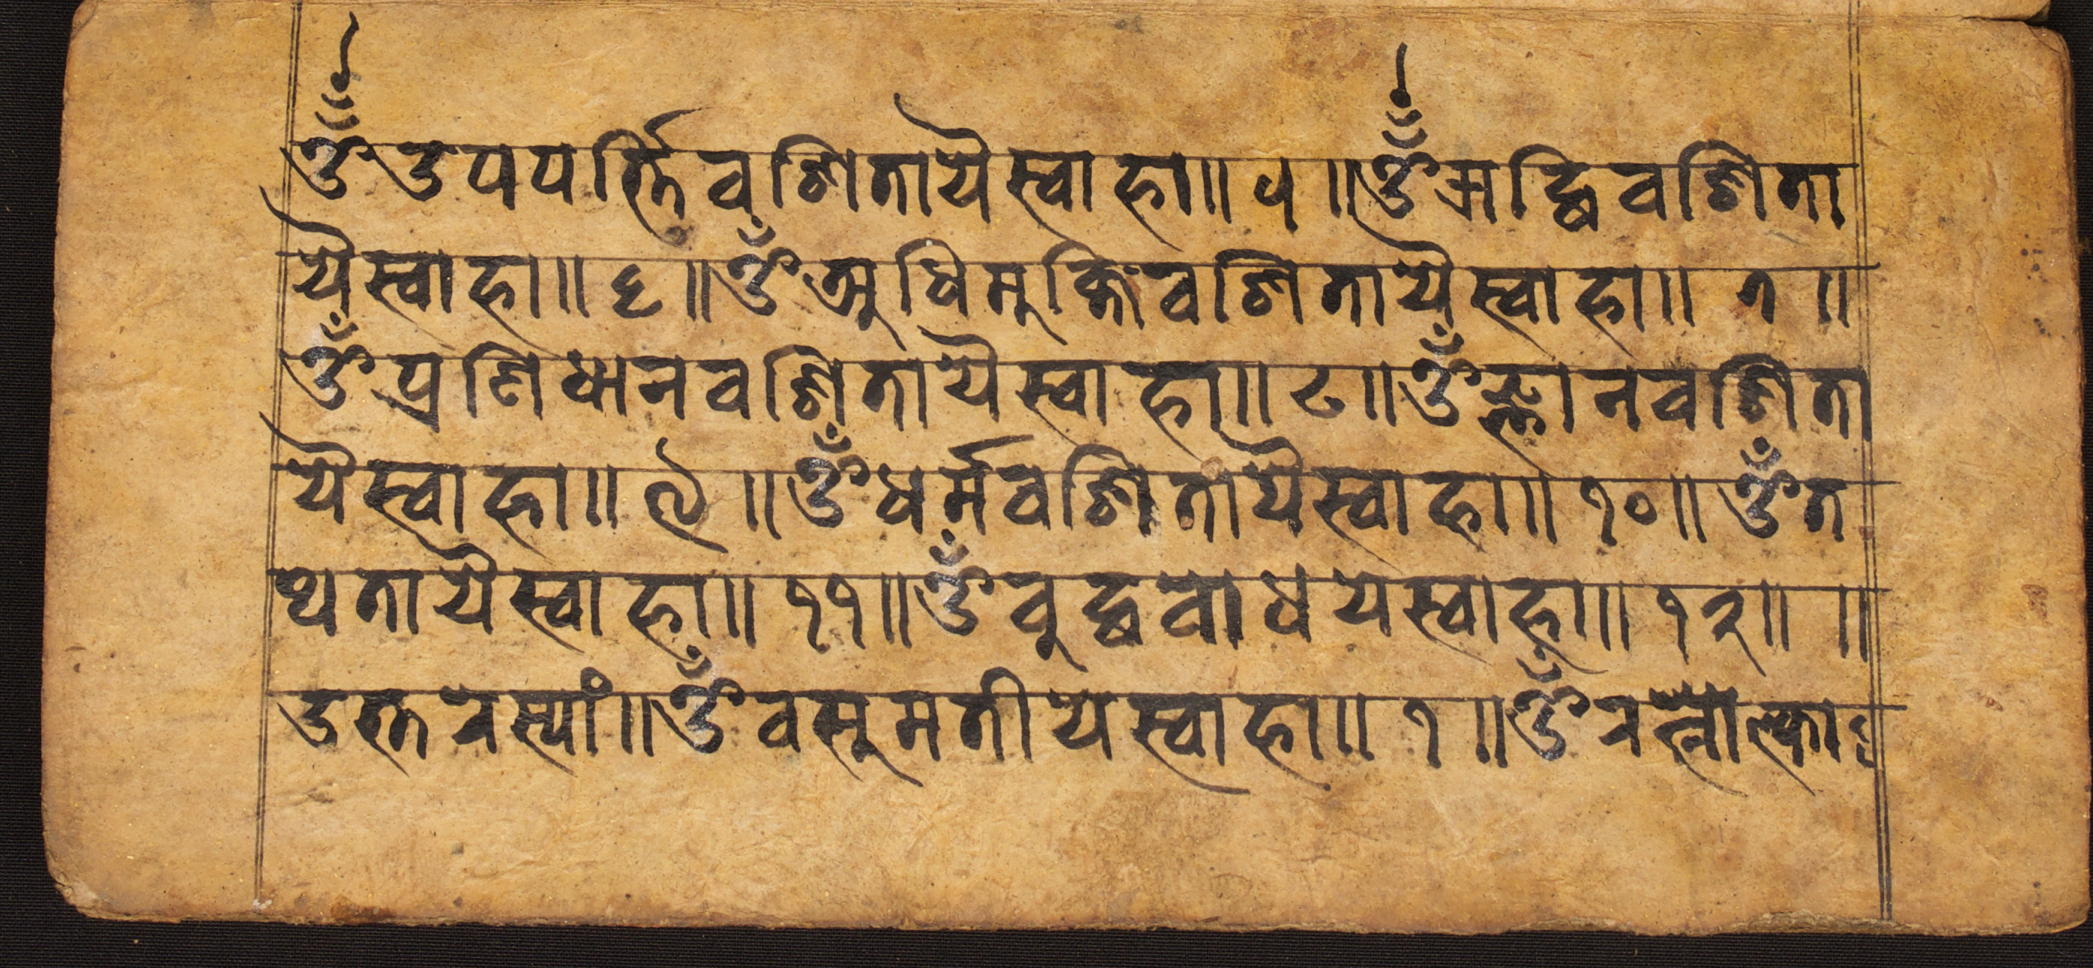 ॐ उपपर्त्तिवशितायै स्वाहा ॥ ५ ॥ ॐ ऋद्धिवशिता
यै स्वाहा ॥ ६ ॥ ॐ अधिमुक्तिवशितायै स्वाहा ॥ ७ ॥
ॐ प्रणिधानवशितायै स्वाहा ॥ ८ ॥ ॐ ज्ञानवशिता
यै स्वाहा ॥ ९ ॥ ॐ धर्मवशितायै स्वाहा ॥ १० ॥ ॐ त
थतायै स्वाहा ॥ ११ ॥ ॐ बुद्धबाधय स्वाहा ॥ १२ ॥ ॥
उत्तरस्यां ॥ ॐ वसुमतीय स्वाहा ॥ १ ॥ ॐ रत्नोल्का